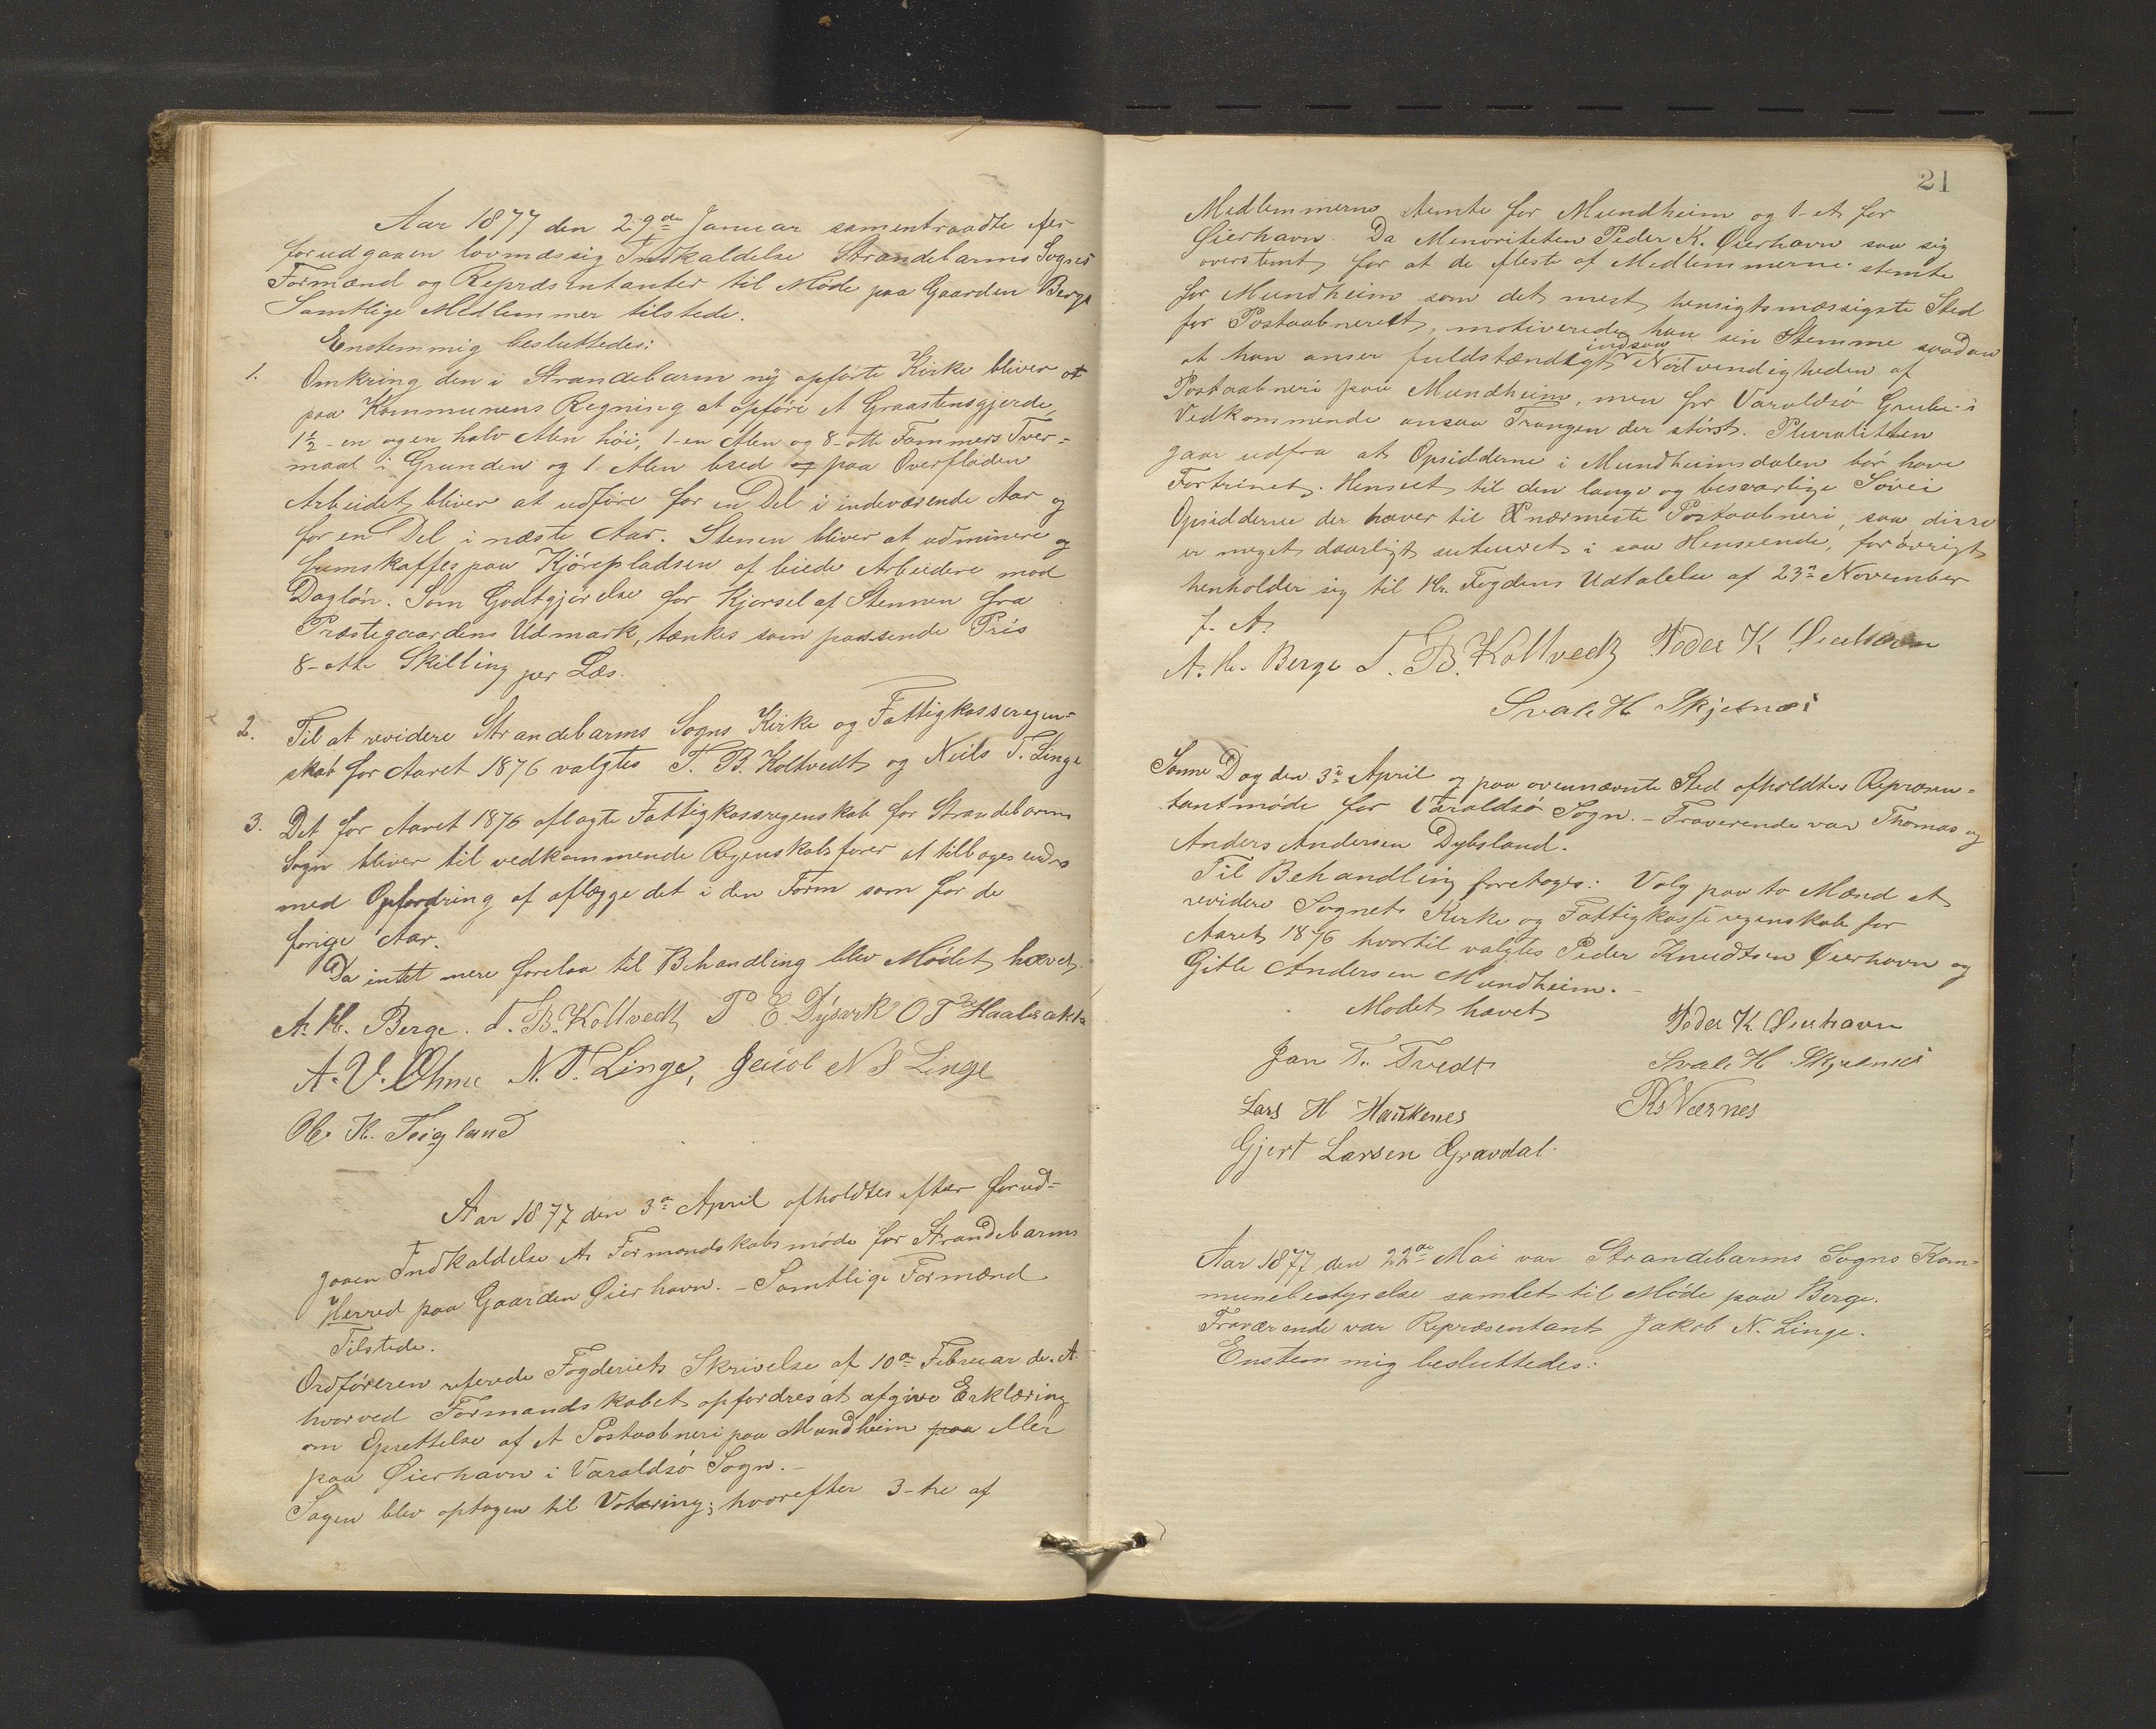 Aar 1877 den 29de Januar sammentraadte efter
forudgaaen lovmæssig Indkaldelse Strandebarms Sogns
Formænd og Repræsentanter til Møde paa Gaarden Berge
Samtlige Medlemmer tilstede.
Enstemmig besluttedes:
1. Omkring den i Strandebarm ny opførte Kirke bliver at
paa Kommunens Regning at opføre et Graastensgjerde,
1½ - en og en halv Alen høi, 1-en Alen og 8-otte Tommers Tver=
maal i Grunden og 1 Alen bred og paa Overfladen
Arbeidet bliver at udføre for en Del i indeværende Aar og
for en Del i næste Aar. Stenen bliver at udminere og
fremskaffes paa Kjørepladsen af leiede Arbeidere mod
Dagløn. Som Godtgjørelse for Kjørsel af Stennen fra
Præstegaardens Udmark, tænkes som passende Pris
8-otte Skilling per Læs.
2. Til at revidere Strandebarms Sogns Kirke og Fattigkasseregen=
skab for Aaret 1876 valgtes T. B. Koltvedt og Neils T. Linge
3. Det for Aaret 1876 aflagte Fattigkasseregenskab for Strandebarms
Sogn bliver til vedkommende Regenskabsfører at tilbagesende
med Opfordring af aflægge det i den Form som for de
forige Aar.
Da intet mere forelaa til Behandling blev Mødet hævet.
A. H. Berge. T. B. Koltvedt P. E. Dysvik O T Haalsakte
A. V. Ohme N. T. Linge, Jacob N S Linge
Ole K. Teigland
Aar 1877 den 3die April afholdtes efter forud=
gaaen Indkaldelse et Formandskabsmøde for Strandebarms
Herred paa Gaarden Øierhavn. - Samtlige Formænd
Tilstede.
Ordføreren referede Fogderiets Skrivelse af 10de Februar ds. A.
hvorved Formandskabet opfordres at afgive Erklæring
om Oprettelse af et Postaabneri paa Mundheim paa eller
paa Øierhavn i Varaldsø Sogn. -
Sagen blev optagen til Votering; hvorefter 3-tre af
21
Medlemmerne stemte for Mundheim og 1-et for
Øierhavn. Da Menoriteten Peder K. Øierhavn saa sig
overstemt for at de fleste af Medlemmerne stemte
for Mundheim som det mest hensigtsmæssigste Sted
for Postaabneriet, motiverede han sin Stemme saadan
indsaa
at han anser fuldstændigt Nødvendigheden af
Postaabneri paa Mundheim, men for Varaldsø Grube's
Vedkommende ansaa Trangen der størst. Pluraliteten
gaar udfra at Opsidderne i Mundheimsdalen bør have
Fortrinet. Henseet til den lange og besværlige Søvei
Opsidderne der haver til nærmeste Postaabneri, saa disse
er meget daarligt situeret i saa Henseende, forøvrigt
henholder sig til Hr. Fogdens Udtalelse af 23de November
f. A.
A. H. Berge T. B. Koltvedt Peder K Øierhavn
Svale H Skjelnæs
Samme Dag den 3die April og paa ovennævnte Sted afholdtes Repræsen=
tantmøde for Varaldsø Sogn. - Fraverende var Thomas og
Anders Andersen Dybsland.
Til Behandling foretoges: Valg paa to Mænd at
revidere Sognets Kirke og Fattigkasseregenskab for
Aaret 1876 hvortil valgtes Peder Knudtsen Øierhavn og
Gitle Andersen Mundheim. -
Mødet hævet
Peder K. Øierhavn
Jan T. Tvedt
Svale H Skjelnæs
Lars H Haukenes
Rs Værnes
Gjert Larsen Gravdal.
Aar 1877 den 22de Mai var Strandebarms Sogns Kom=
munebestyrelse samlet til Møde paa Berge.
Fraværende var Repræsentant Jakob N. Linge.
Enstemmig besluttedes: